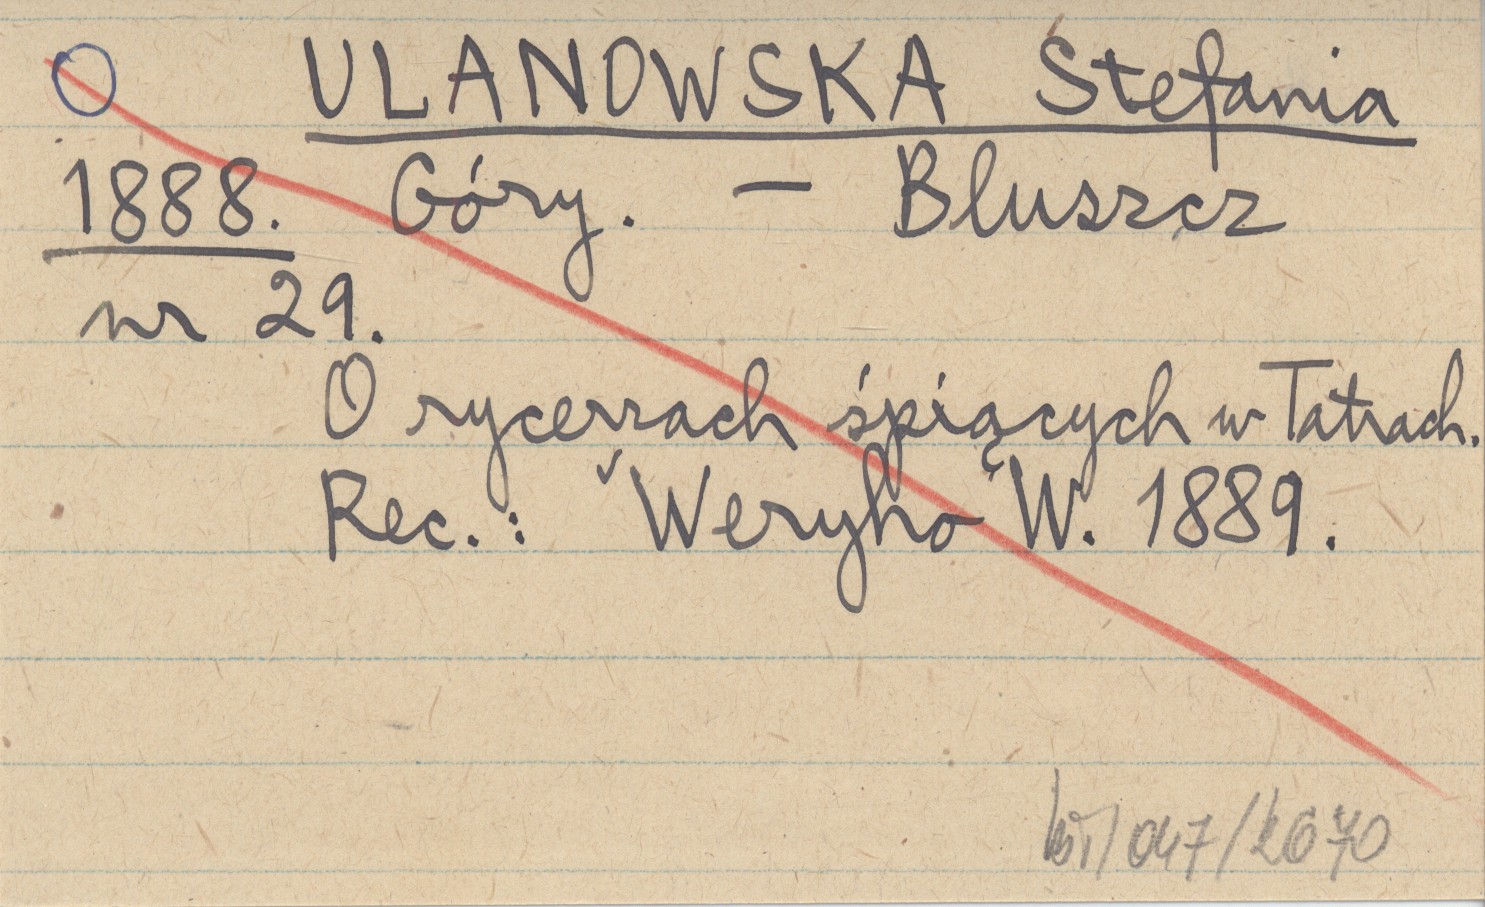 O ULANOWSKA Stefania
1888. Góry. – Bluszcz
nr 29.
O rycerzach śpiących w Tatrach.
Rec.: Weryho W. 1889.
/047/2670